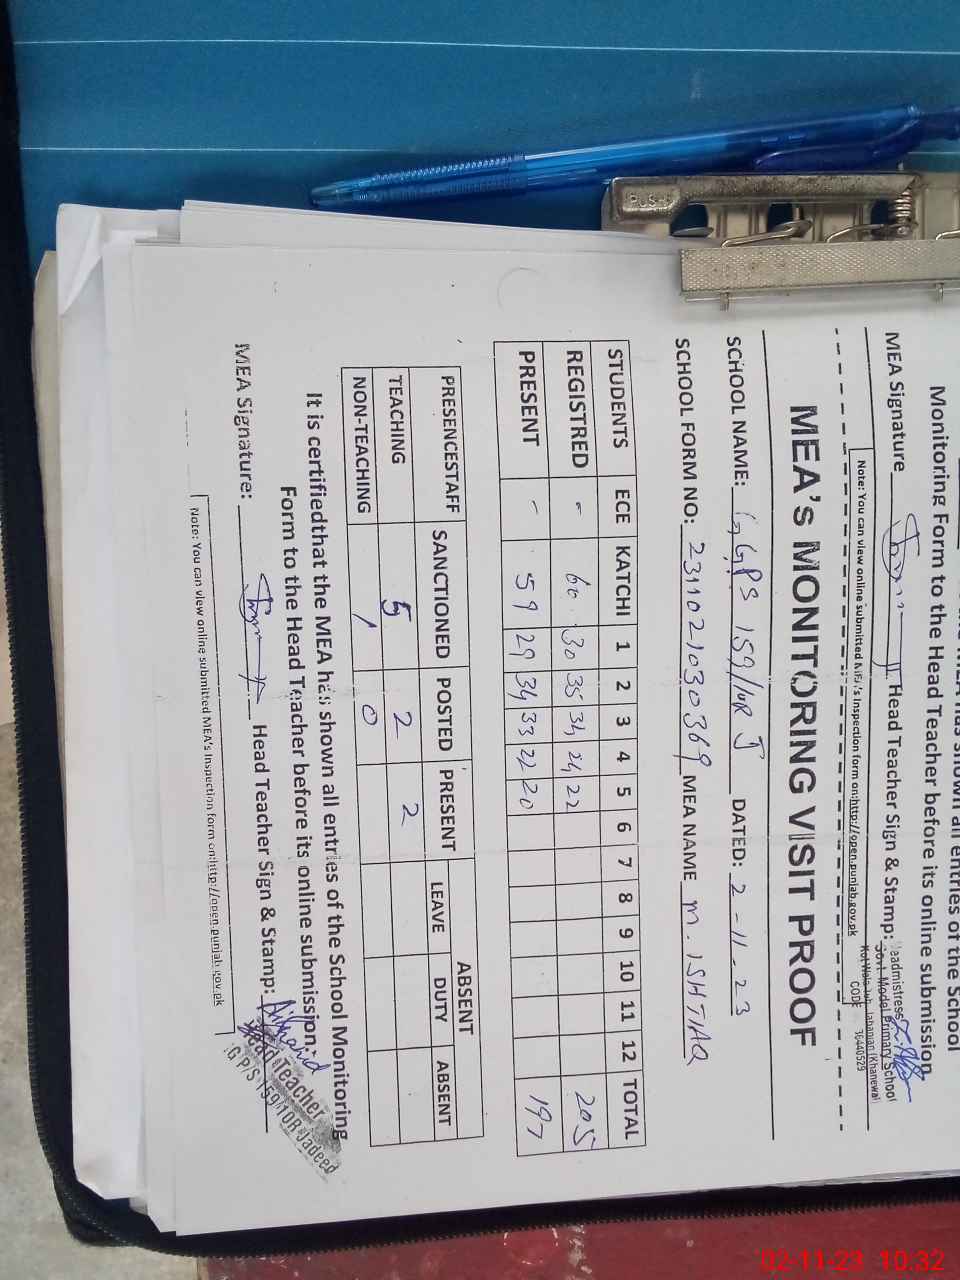 PUSH
Monitoring Form to the Head Teacher before its online submission
MEA Signature Head Teacher Sign & Stamp:
Headmistress
Govt. Model Primary School
Jahanian (Khanewal)
CODE 36440529
Note: You can view online submitted MEA's Inspection form on:http://open.punjab.gov.pk
MEA's MONITORING VISIT PROOF
SCHOOL NAME: GGPS 159/10R J DATED: 2-11-23
SCHOOL FORM NO: 2311021030369 MEA NAME M. ISHTIAQ
STUDENTS ECE KATCHI 1 2 3 4 5 6 7 8 9 10 11 12 TOTAL
REGISTRED - 60 30 35 34 24 22 205
PRESENT - 59 29 34 33 22 20 197
PRESENCESTAFF SANCTIONED POSTED PRESENT ABSENT
LEAVE DUTY ABSENT
TEACHING 5 2 2
NON-TEACHING 1 0
It is certifiedthat the MEA has shown all entries of the School Monitoring
Form to the Head Teacher before its online submission.
MEA Signature: Head Teacher Sign & Stamp:
Head Teacher
GGPS 159/10R Jadeed
Note: You can view online submitted MEA's Inspection form on:http://open.punjab.gov.pk
02-11-23 10:32